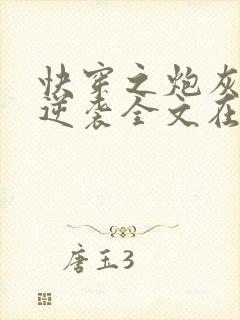 快穿之炮灰
逆袭全文在
唐玉3